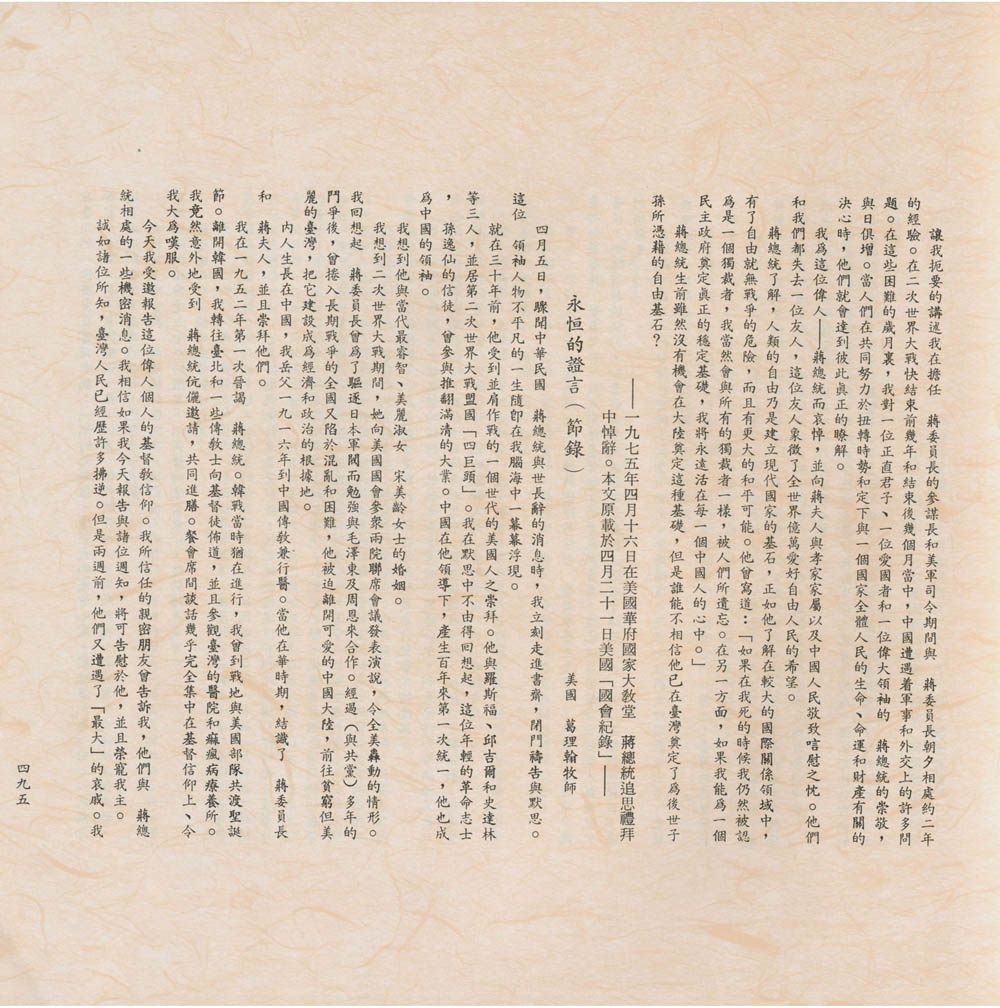 讓我扼要的講述我在擔任　蔣委員長的參謀長和美軍司令期間與　蔣委員長朝夕相處約二年
的經驗。在二次世界大戰快結束前幾年和結束後幾個月當中，中國遭遇着軍事和外交上的許多問
題。在這些困難的歲月裏，我對一位正直君子、一位愛國者和一位偉大領袖的　蔣總統的崇敬，
與日俱增。當人們在共同努力於扭轉時勢和定下與一個國家全體人民的生命、命運和財產有關的
決心時，他們就會達到彼此眞正的瞭解。
我爲這位偉人——蔣總統而哀悼，並向蔣夫人與孝家家屬以及中國人民敬致唁慰之忱。他們
和我們都失去一位友人，這位友人象徵了全世界億萬愛好自由人民的希望。
蔣總統了解，人類的自由乃是建立現代國家的基石，正如他了解在較大的國際關係領域中，
有了自由就無戰爭的危險，而且有更大的和平可能。他曾寫道：「如果在我死的時候我仍然被認
爲是一個獨裁者，我當然會與所有的獨裁者一樣，被人們所遺忘。在另一方面，如果我能爲一個
民主政府奠定眞正的穩定基礎，我將永遠活在每一個中國人的心中。」
蔣總統生前雖然沒有機會在大陸奠定這種基礎，但是誰能不相信他已在臺灣奠定了爲後世子
孫所憑藉的自由基石？
永恒的證言（節錄）
——一九七五年四月十六日在美國華府國家大敎堂　蔣總統追思禮拜
中悼辭。本文原載於四月二十一日美國「國會紀錄」——
美國　葛理翰牧師
四月五日，驟聞中華民國　蔣總統與世長辭的消息時，我立刻走進書齋，閉門禱告與默思。
這位　領袖人物不平凡的一生隨卽在我腦海中一幕幕浮現。
就在三十年前，他受到並肩作戰的一個世代的美國人之崇拜。他與羅斯福、邱吉爾和史達林
等三人，並居第二次世界大戰盟國「四巨頭」。我在默思中不由得回想起，這位年輕的革命志士
，孫逸仙的信徒，會參與推翻滿清的大業。中國在他領導下，產生百年來第一次統一，他也成
爲中國的領袖。
我想到他與當代最睿智、美麗淑女　宋美齡女士的婚姻。
我想到二次世界大戰期間，她向美國國會參衆兩院聯席會議發表演說，令全美轟動的情形。
我回想起　蔣委員長曾爲了驅逐日本軍閥而勉強與毛澤東及周恩來合作。經過（與共黨）多年的
鬥爭後，會捲入長期戰爭的全國又陷於混亂和困難，他被迫離開可愛的中國大陸，前往貧窮但美
麗的臺灣，把它建設成爲經濟和政治的根據地。
內人生長在中國，我岳父一九一六年到中國傳敎兼行醫。當他在華時期，結識了　蔣委員長
和　蔣夫人，並且崇拜他們。
我在一九五二年第一次晉謁　蔣總統。韓戰當時猶在進行，我曾到戰地與美國部隊共渡聖誕
節。離開韓國，我轉往臺北和一些傳敎士向基督徒佈道，並且參觀臺灣的醫院和痲瘋病療養所。
我竟然意外地受到　蔣總統伉儷邀請，共同進膳。餐會席間談話幾乎完全集中在基督信仰上、令
我大爲嘆服。
今天我受邀報告這位偉人個人的基督敎信仰。我所信任的親密朋友曾告訴我，他們與　蔣總
統相處的一些機密消息。我相信如果我今天報告與諸位週知，將可告慰於他，並且榮寵我主。
誠如諸位所知，臺灣人民已經歷許多拂逆。但是兩週前，他們又遭遇了「最大」的哀戚。我
四九五